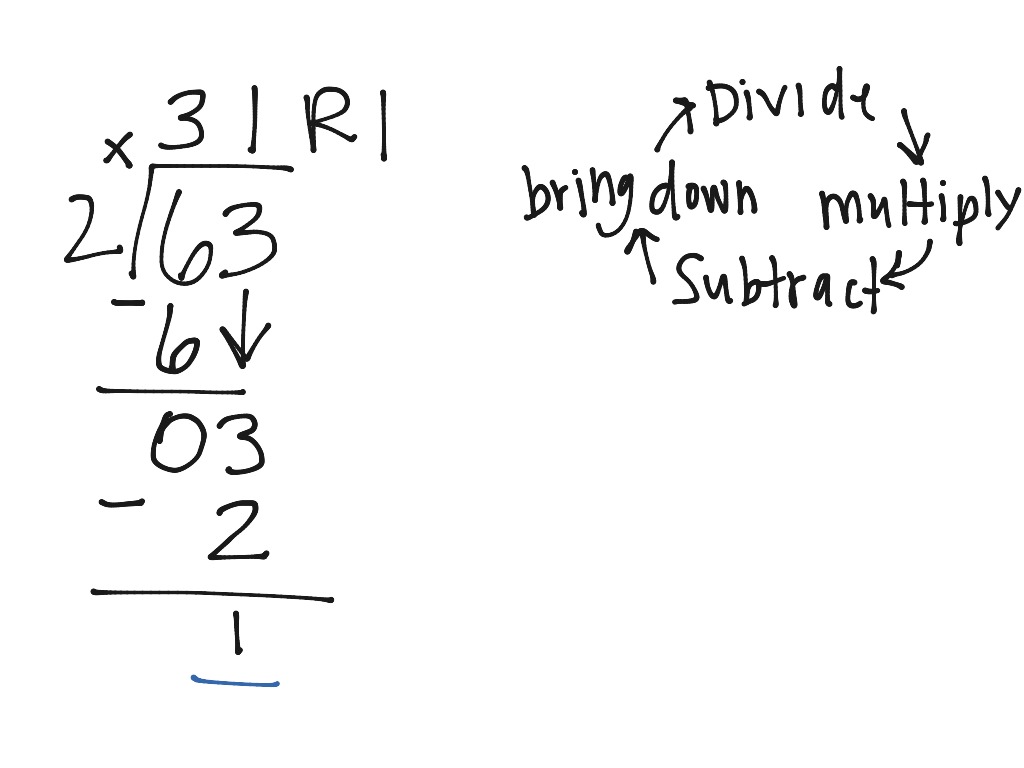 31 R1
x
2 63
- 6
03
- 2
1
Divide
multiply
Subtract
bring down